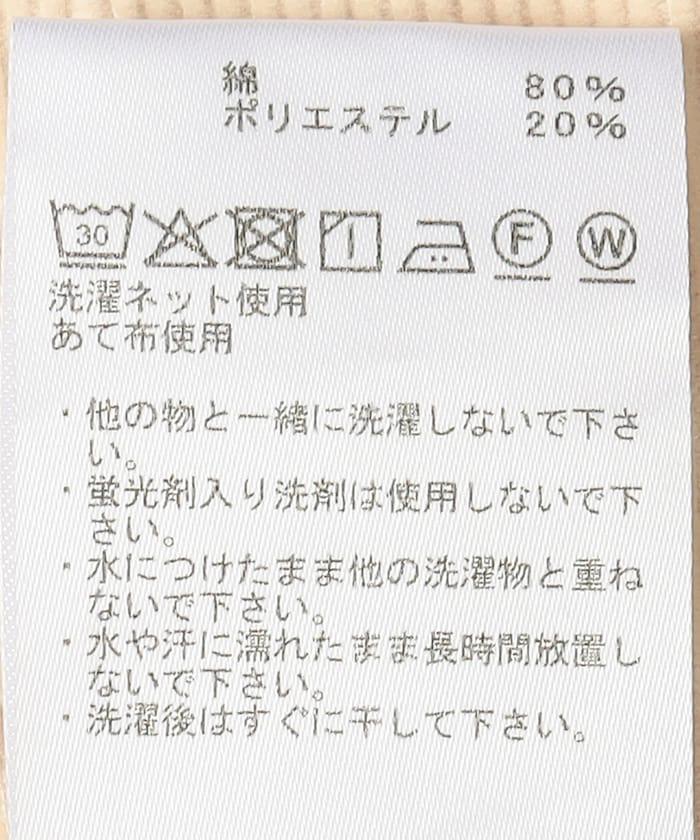 綿 80%
ポリエステル 20%
30 F W
洗濯ネット使用
あて布使用
・他の物と一緒に洗濯しないで下さ
い。
・蛍光剤入り洗剤は使用しないで下
さい。
・水につけたまま他の洗濯物と重ね
ないで下さい。
・水や汗に濡れたまま長時間放置し
ないで下さい。
・洗濯後はすぐに干して下さい。